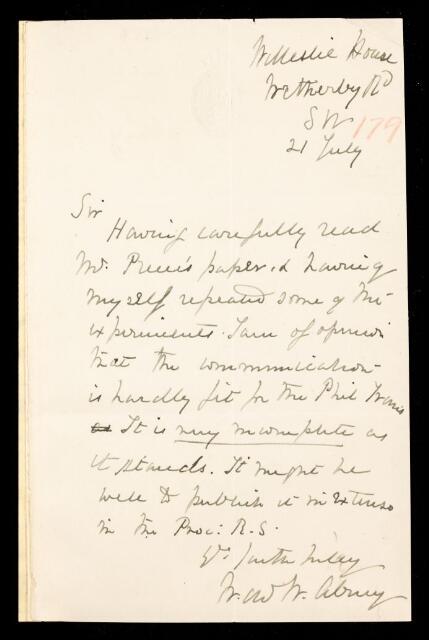 Willeslie House
Wetherby Rd
SW
179
21 July
Sir
Having carefully read
Mr. Preece's paper & having
myself repeated some of the
experiments I am of opinion
that the communication
is hardly fit for the Phil Trans
It is very incomplete as
it stands. It might be
well to publish it in extenso
in the Proc: R.S.
Yr. faithfully
W. de W. Abney